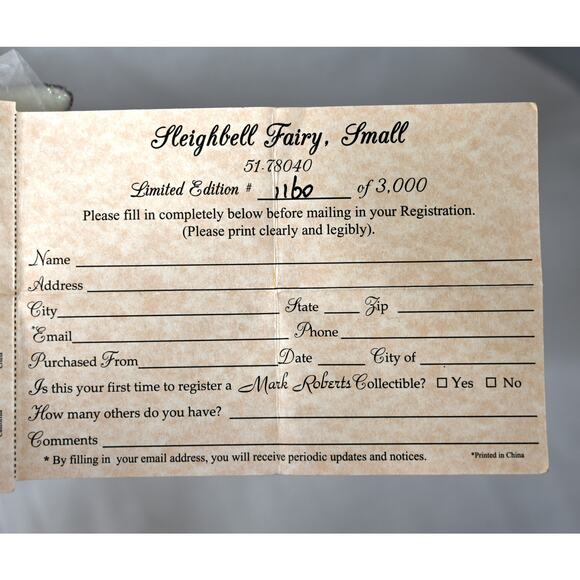 Sleighbell Fairy, Small
51-78040
Limited Edition # 1160 of 3,000
Please fill in completely below before mailing in your Registration.
(Please print clearly and legibly).
Name
Address
City State Zip
*Email Phone
Purchased From Date City of
Is this your first time to register a Mark Roberts Collectible? ☐ Yes ☐ No
How many others do you have?
Comments
* By filling in your email address, you will receive periodic updates and notices. *Printed in China